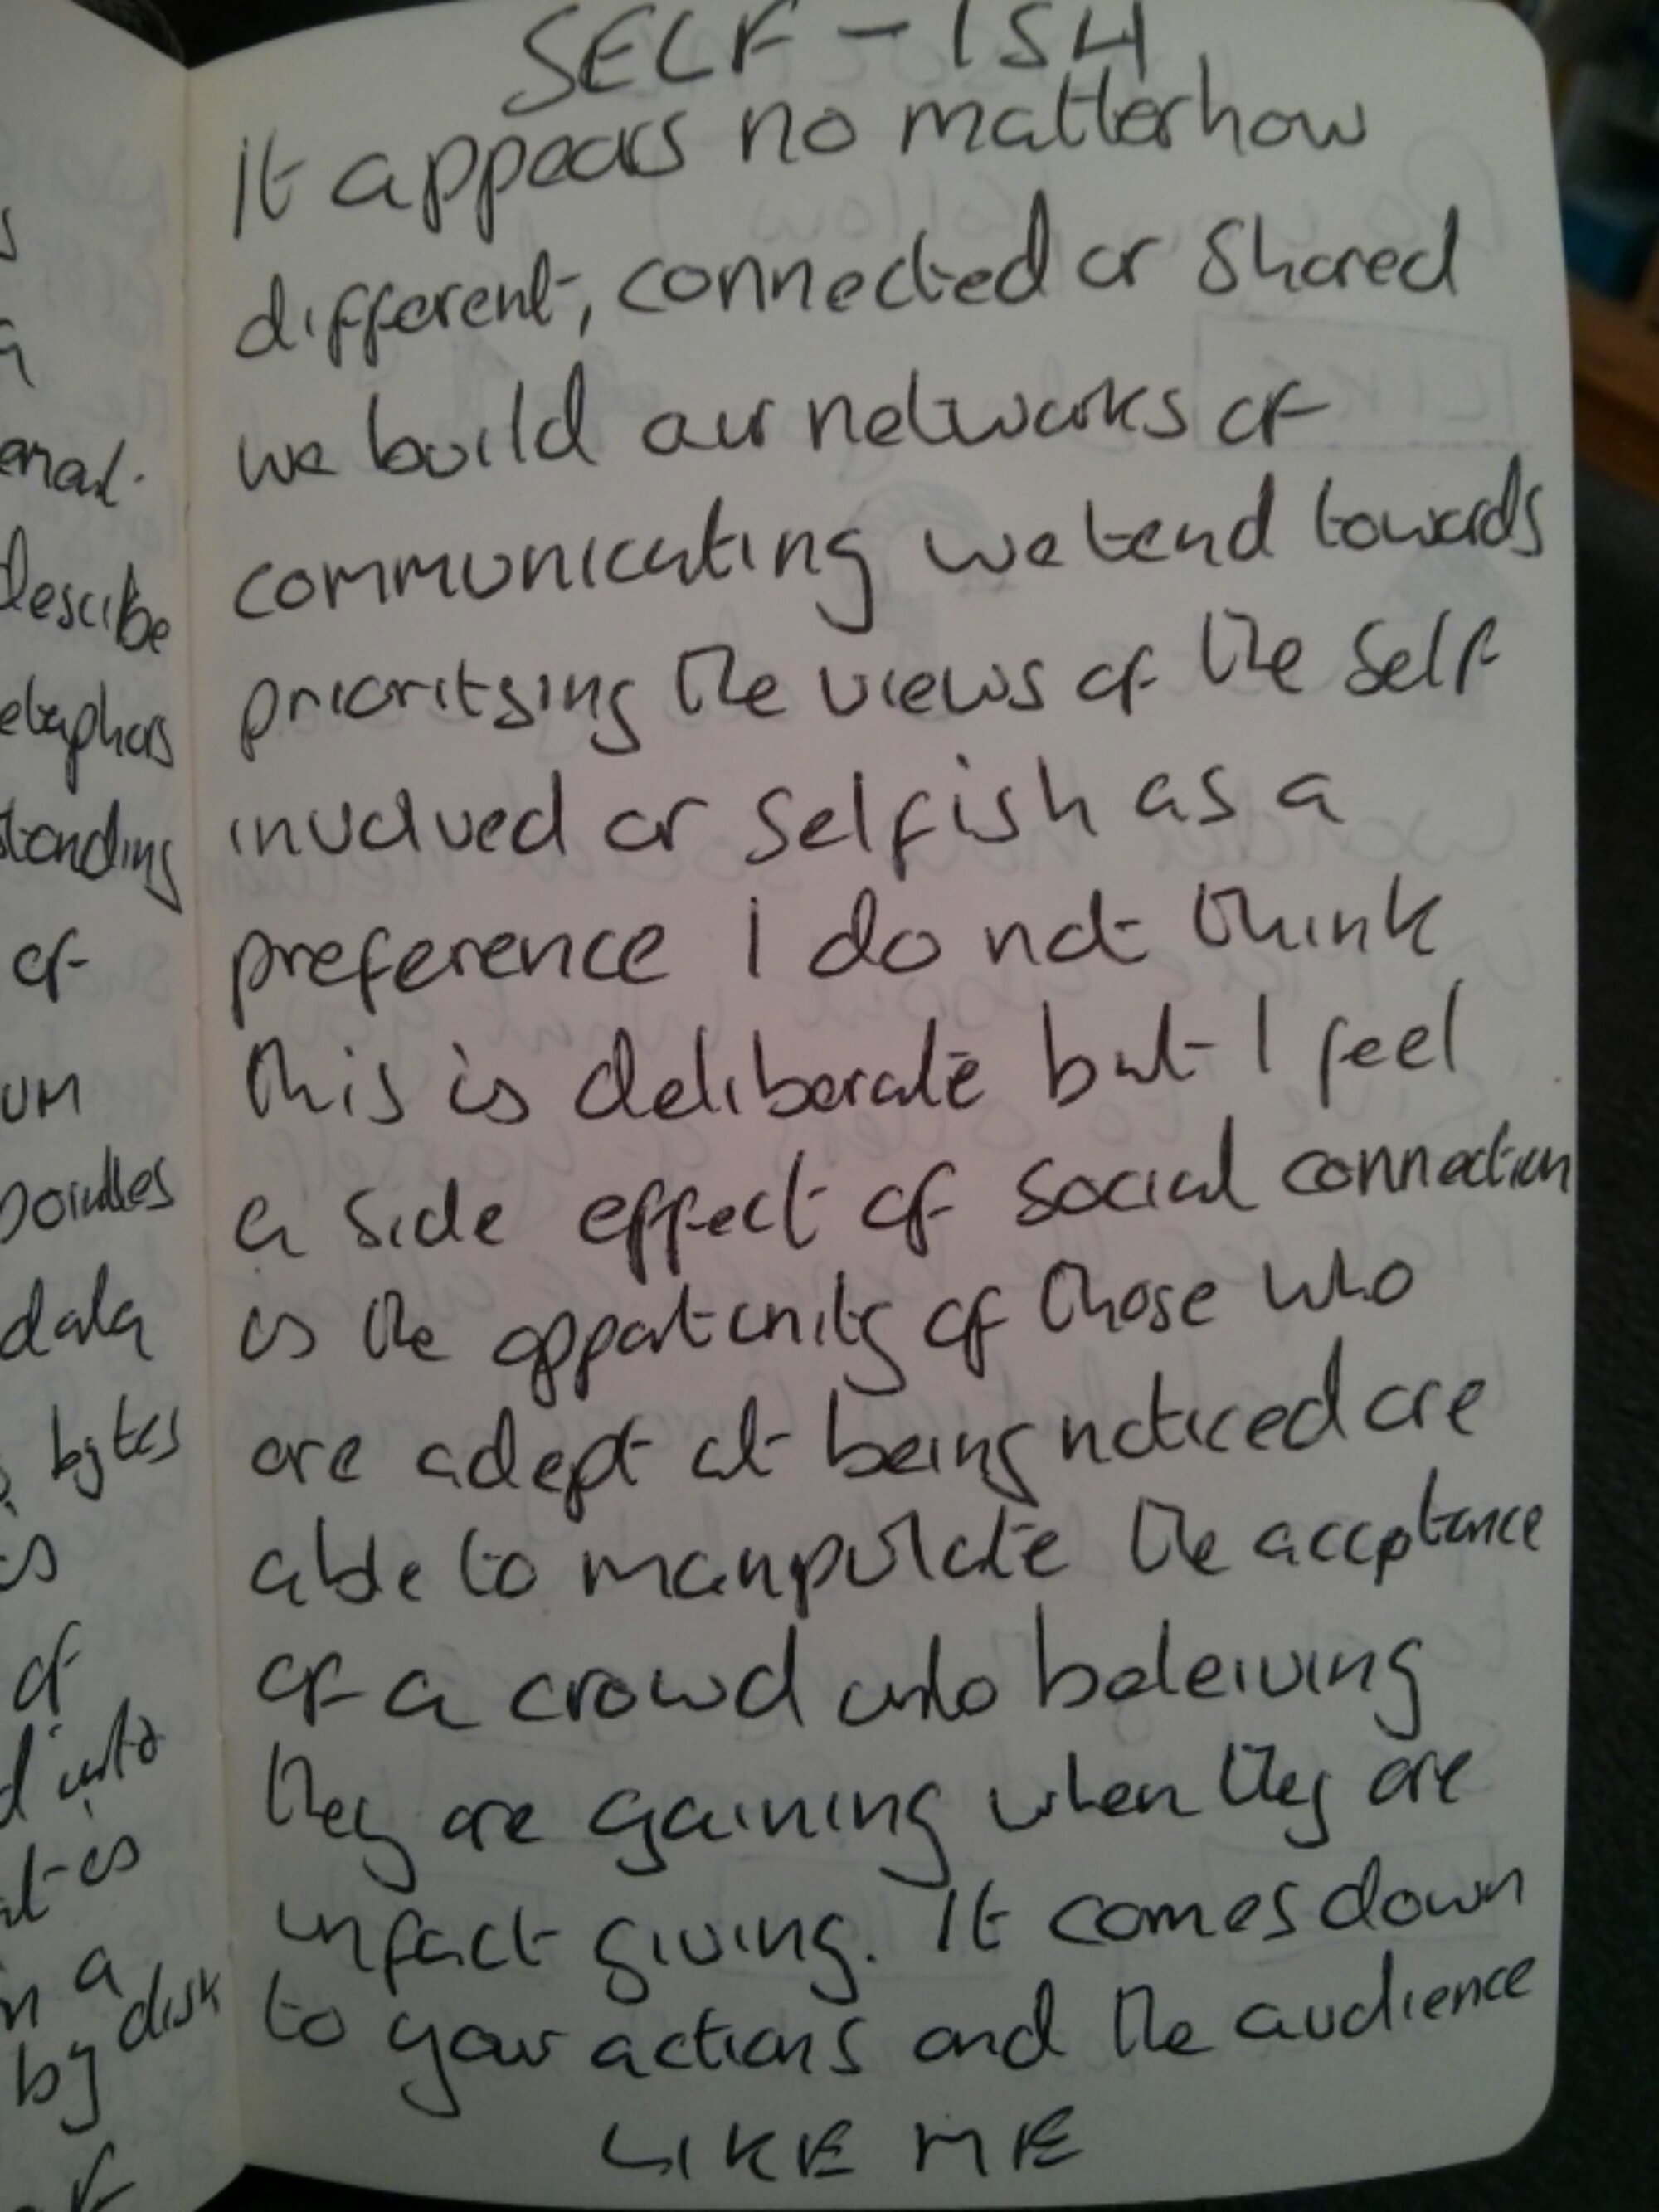 s
a
email.
describe
etaphors
standing
of
um
data
bytes
is
of
d into
at is
in a
disk
by
of
SELF-ISH
It appears no matter how
different, connected or shared
we build our networks of
communicating we tend towards
prioritsing the views of the self
involved or selfish as a
preference I do not think
this is deliberate but I feel
a side effect of social connection
is the opportunity of those who
are adept at being noticed are
able to manpulate the accptance
of a crowd into beleiving
they are gaining when they are
infact giving. It comes down
to your actions and the audience
LIKE ME